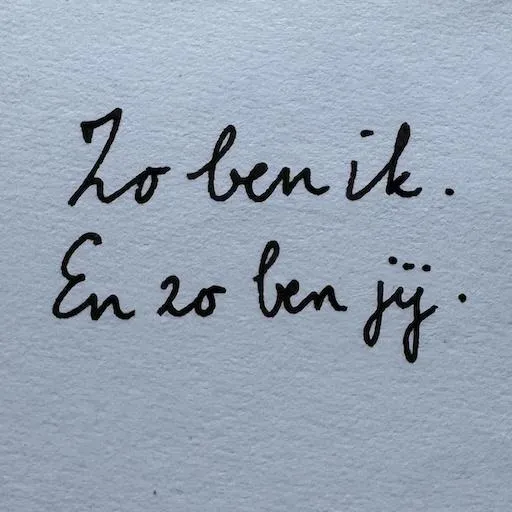 Zo ben ik.
En zo ben jij.